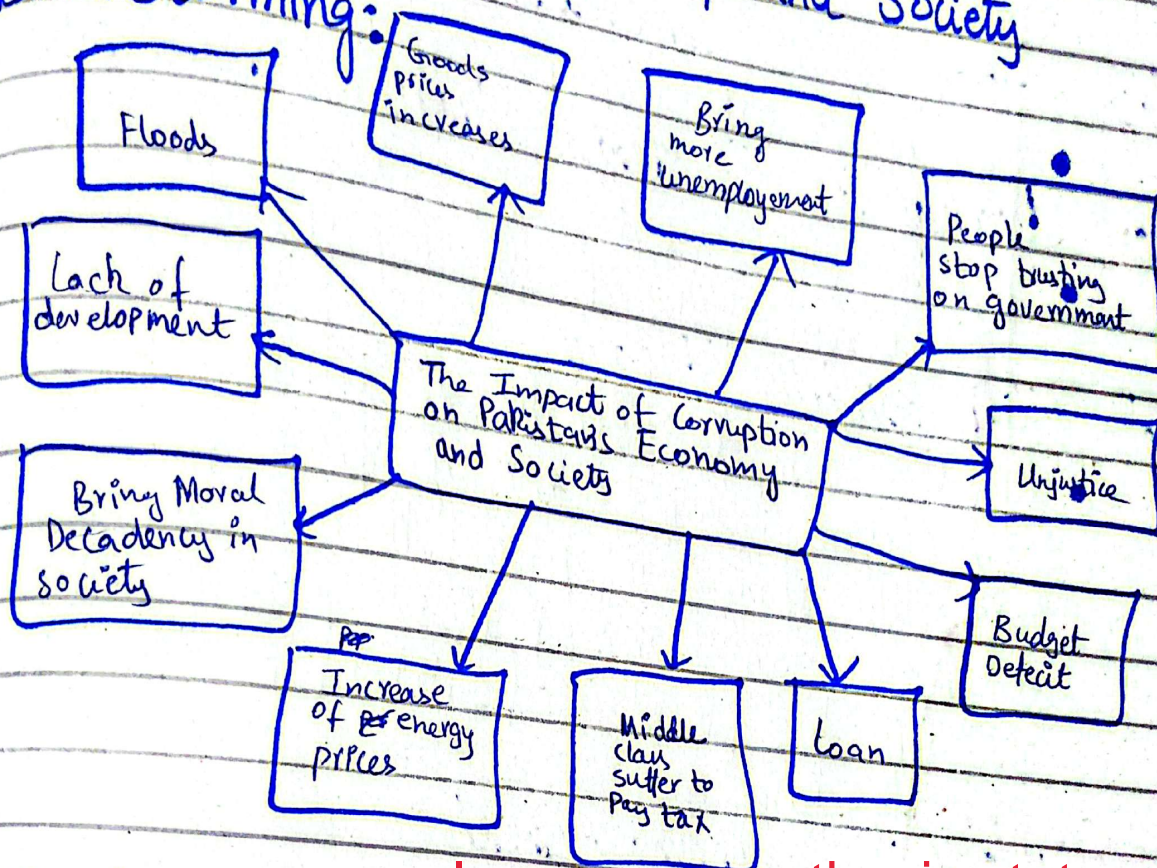 and Society
Floods
Goods
prices
increases
Bring
more
unemployement
People
stop trusting
on government
Lack of
development
The Impact of Corruption
on Pakistan's Economy
and Society
Unjustice
Bring Moral
Decadency in
society
Budget
Defecit
Increase
of energy
prices
Middle
class
suffer to
Pay tax
Loan